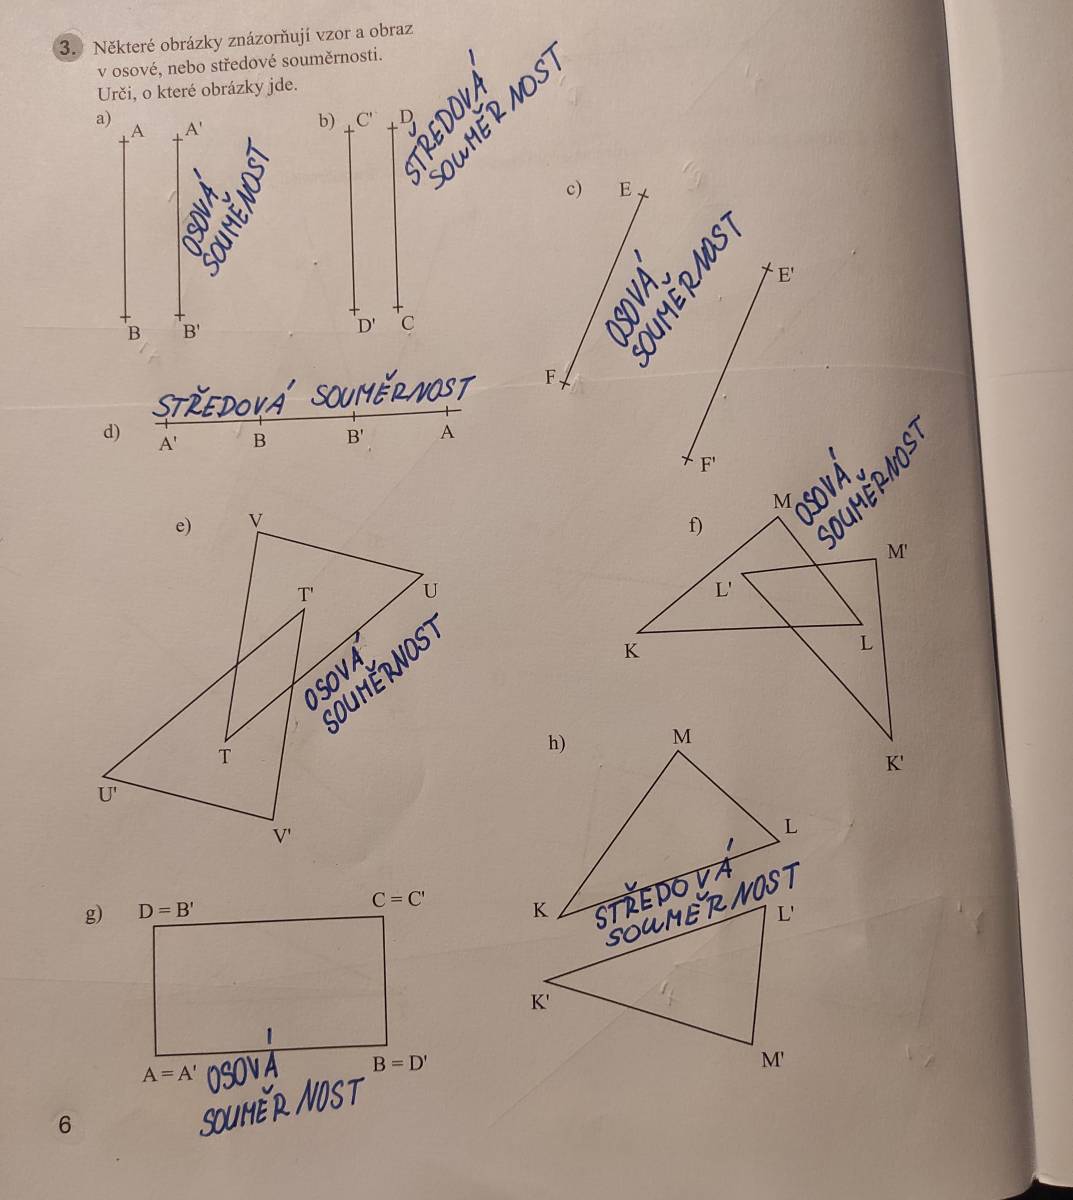 3. Některé obrázky znázorňují vzor a obraz
v osové, nebo středové souměrnosti.
Urči, o které obrázky jde.
a)
A
A'
B
B'
OSOVÁ
SOUMĚNOST
b)
C'
D
D'
C
STŘEDOVÁ
SOUMĚRNOST
c)
E
F
E'
F'
OSOVÁ
SOUMĚRNOST
STŘEDOVÁ SOUMĚRNOST
d)
A'
B
B'
A
e)
V
U
T'
T
U'
V'
OSOVÁ
SOUMĚRNOST
f)
M
M'
L'
K
L
K'
OSOVÁ
SOUMĚRNOST
g)
D = B'
C = C'
A = A'
B = D'
OSOVÁ
SOUMĚRNOST
h)
M
L
K
STŘEDOVÁ
SOUMĚRNOST
L'
K'
M'
6